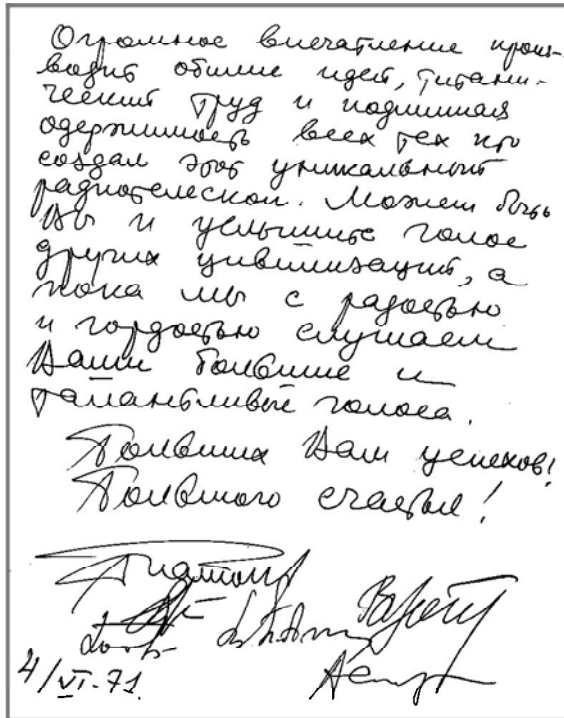 Огромное впечатление произ-
водит обилие идей, титани-
ческий труд и подлинная
одержимость всех тех кто
создал этот уникальный
радиотелескоп. Может быть
Вы и услышите голос
других цивилизаций, а
пока мы с радостью
и гордостью слушаем
Ваши большие и
талантливые голоса.
Больших Вам успехов!
Большого счастья!
4/VI-71.